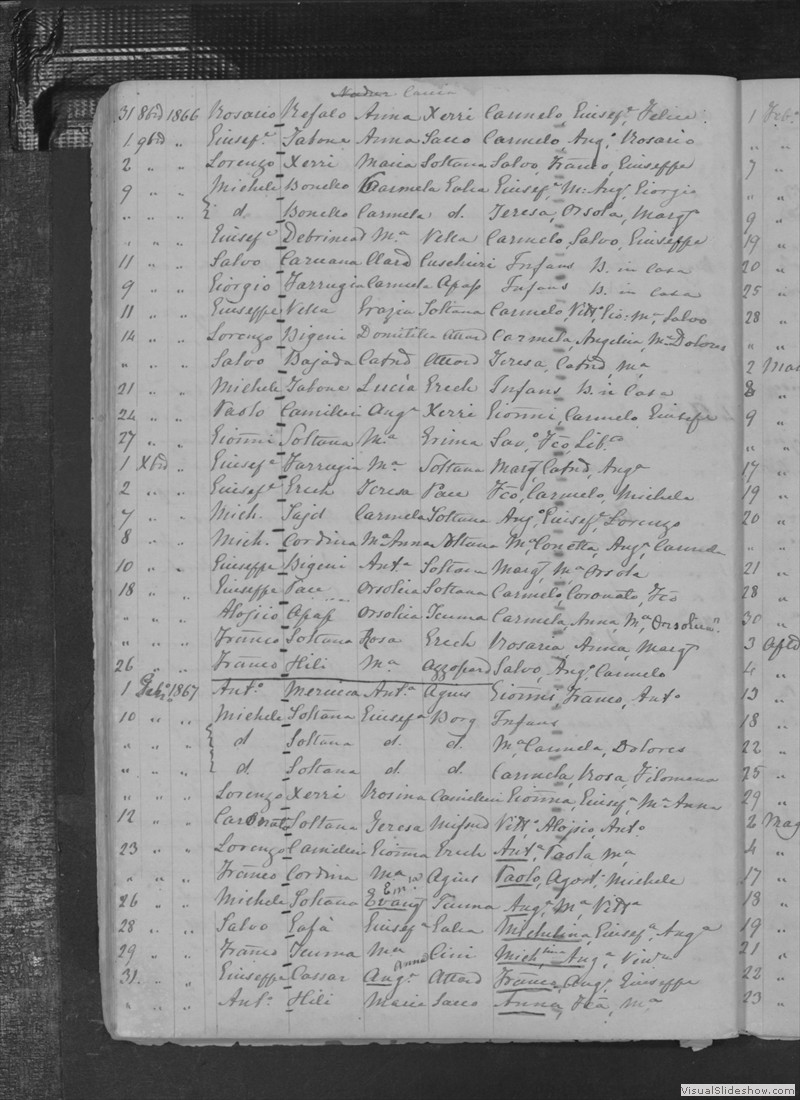 31 8brē 1866 Rosario Refalo Anna Xerri Carmelo, Giusefᵃ, Felice
1 9brē „ Giusefᵉ Tabona Anna Sacco Carmelo, Angᵒ, Rosario
2 „ „ Lorenzo Xerri Maria Soltana Salvo, Franco, Giuseppe
9 „ „ Michele Bonello Carmela Galea Giusefᵉ, Mᵃ Angᵃ, Giorgia
„ „ d. Bonello Carmela d. Teresa, Orsola, Margᵗᵃ
„ „ „ Giusefᵉ Debrincat Mᵃ Vella Carmelo, Salvo, Giuseppe
11 „ „ Salvo Caruana Clara Cuschieri Infans B. in Casa
9 „ „ Giorgio Farrugia Carmela Apap Infans B. in Casa
11 „ „ Giuseppe Vella Grazia Soltana Carmelo, Vittᵒ, Gio: Mᵃ, Salvo
14 „ „ Lorenzo Bigeni Domitilla Attard Carmela, Angelica, Mᵃ Dolores
„ „ „ Salvo Bajada Catnᵃ Attard Teresa, Catnᵃ, Mᵃ
21 „ „ Michele Tabone Lucia Grech Infans B. in Casa
24 „ „ Paolo Camilleri Angᵃ Xerri Gionni, Carmelo, Giusepe
27 „ „ Gionni Soltana Mᵃ Grima Savᵒ, Fcō, Libᵗᵃ
1 Xbrē „ Giusefᵉ Farrugia Mᵃ Soltana Margᵗ, Catnᵃ, Angᵃ
2 „ „ Giusefᵉ Grech Teresa Pace Fcō, Carmelo, Michele
7 „ „ Mich. Sajd Carmela Soltana Angᵒ, Giusefᵉ, Lorenzo
8 „ „ Mich. Cordina Mᵃ Anna Soltana Mᵃ Concetta, Angᵃ, Carmela
10 „ „ Giuseppe Bigeni Antᵃ Soltana Margᵗ, Mᵃ Orsola
18 „ „ Giuseppe Pace Orsolia Soltana Carmelo, Coronato, Fcō
„ „ Alojsio Apap Orsolia Teuma Carmela, Anna Mᵃ, Orsolia
„ „ Franco Soltana Rosa Grech Rosaria Anna, Margᵗ
26 „ „ Franco Hili Mᵃ Azzopard Salvo, Angᵒ, Carmelo
1 1867 Antᵒ Mercieca Antᵃ Agius Gionni, Franco, Antᵒ
10 „ „ Michele Soltana Giusefa Borg Infans
„ „ „ d Soltana d. d. Mᵃ Carmela, Dolores
„ „ „ d. Soltana d. d Carmela, Rosa, Filomena
„ „ Lorenzo Xerri Rosina Camilleri Gionna, Giusefᵃ, Mᵃ Anna
12 „ „ Coronato Soltana Teresa Mifsud Vittᵒ, Alojsio, Antᵒ
23 „ „ Lorenzo Camilleri Gionna Grech Antᵃ, Paola, Mᵃ
„ „ „ Franco Cordina Mᵃ Agius Paolo, Agostᵒ, Michele
26 „ „ Michele Soltana Evangᵗ Teuma Angᵃ, Mᵃ Vittᵃ
28 „ „ Salvo Gafà Giusefᵃ Galea Michelina, Giusefᵃ, Angᵃ
29 „ „ Franco Teuma Mᵃ Cini Michˡⁱⁿᵃ, Angᵃ
31. „ „ Giuseppe Cassar Angᵃ Anna Attard Franco, Angᵒ, Giuseppe
„ „ „ Antᵒ Hili Maria Sacco Anna, Fcā, Mᵃ
1 Febᵒ
„ „
7 „
„ „
9 „
19 „
20 „
25 „
28 „
„ „
2
8
9 „
„ „
17 „
19 „
20 „
„ „
21 „
28 „
30 „
3
4 „
13 „
18 „
22 „
25 „
29 „
2 Mag
4 „
17 „
18 „
19 „
21 „
22 „
23 „
VisualSlideshow.com